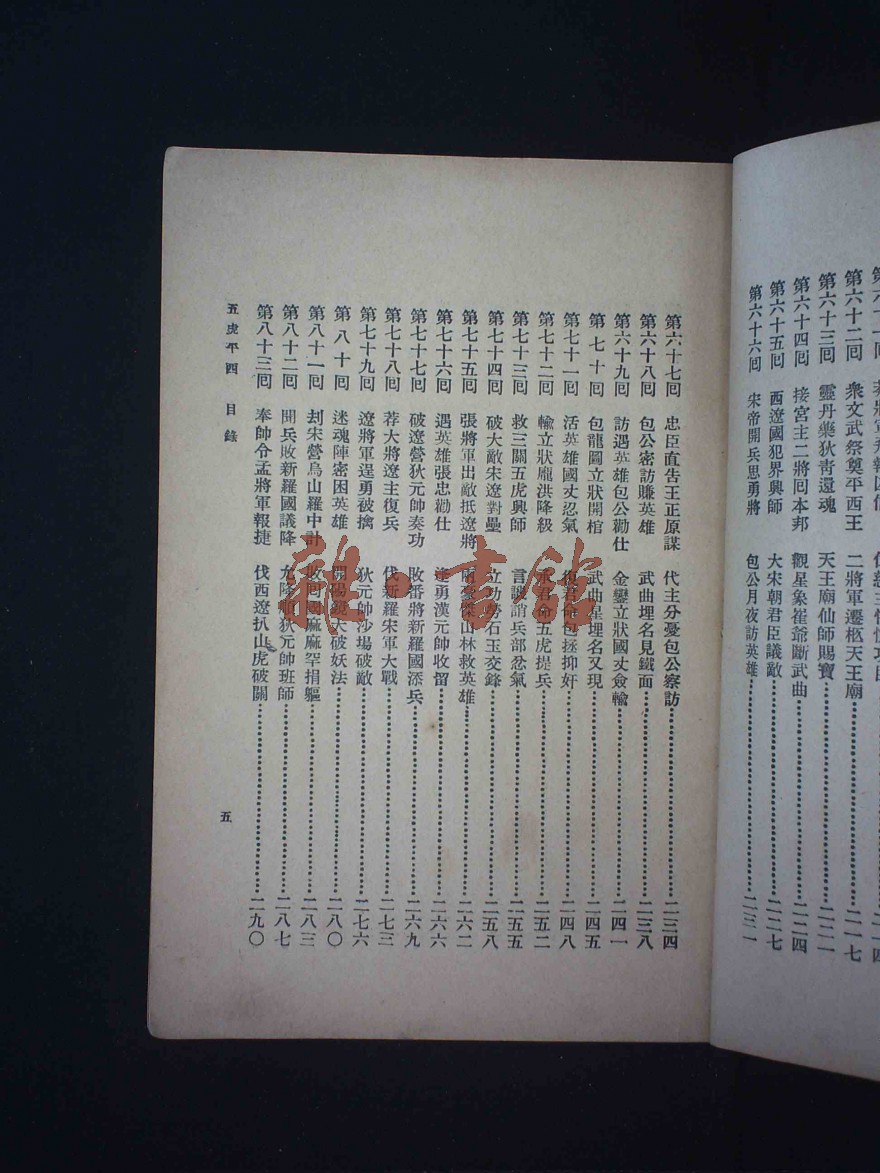 第六十二回 衆文武祭奠平西王 二將軍遷柩天王廟 二一七
第六十三回 靈丹藥狄青還魂 天王廟仙師賜寶 二二一
第六十四回 接宮主二將回本邦 觀星象崔爺斷武曲 二二四
第六十五回 西遼國犯界興師 大宋朝君臣議敵 二二七
第六十六回 宋帝開兵思勇將 包公月夜訪英雄 二三一
第六十七回 忠臣直告王正原謀 代主分憂包公察訪 二三四
第六十八回 包公密訪賺英雄 武曲埋名見鐵面 二三八
第六十九回 訪遇英雄包公勸仕 金鑾立狀國丈僉輸 二四一
第七十回 包龍圖立狀開棺 武曲星埋名又現 二四五
第七十一回 活英雄國丈忍氣 復君命包拯抑奸 二四八
第七十二回 輸立狀龐洪降級 承君命五虎提兵 二五二
第七十三回 救三關五虎興師 言譏誚兵部忿氣 二五五
第七十四回 破大敵宋遼對壘 立功勞石玉交鋒 二五八
第七十五回 張將軍出敵抵遼將 豪傑山林救英雄 二六二
第七十六回 遇英雄張忠勸仕 逢勇漢元帥收留 二六六
第七十七回 破遼營狄元帥奏功 敗番將新羅國添兵 二六九
第七十八回 荐大將遼主復兵 伐新羅宋軍大戰 二七三
第七十九回 遼將軍逞勇被擒 狄元帥沙場破敵 二七六
第八十回 迷魂陣密困英雄 開陽鏡大破妖法 二八〇
第八十一回 刦宋營烏山羅中計 敗回國麻麻罕捐軀 二八三
第八十二回 開兵敗新羅國議降 允隆順狄元帥班師 二八七
第八十三回 奉帥令孟將軍報捷 伐西遼扒山虎破關 二九〇
五虎平西 目錄 五
龍書館